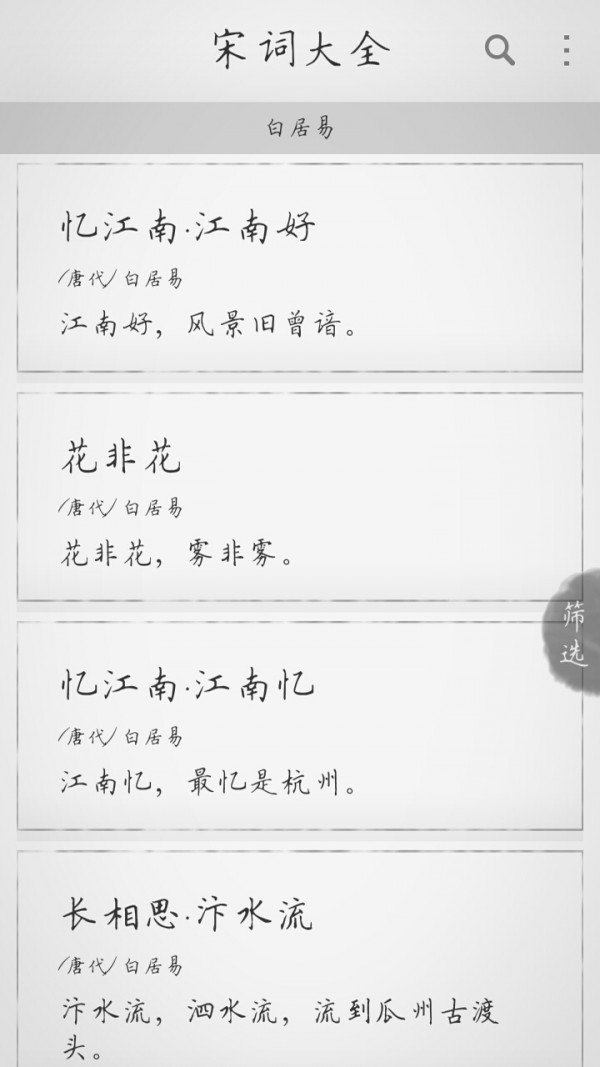 宋词大全
白居易
忆江南·江南好
(唐代) 白居易
江南好，风景旧曾谙。
花非花
(唐代) 白居易
花非花，雾非雾。
筛选
忆江南·江南忆
(唐代) 白居易
江南忆，最忆是杭州。
长相思·汴水流
(唐代) 白居易
汴水流，泗水流，流到瓜州古渡
头。